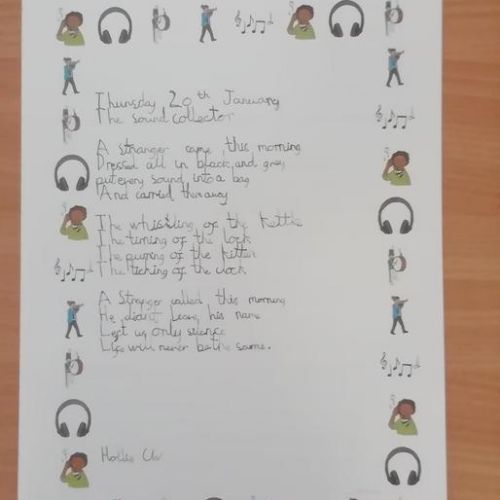 Thursday 20th January
The sound collector
A stranger came this morning
Dressed all in black and grey
put every sound into a bag
And carried them away
The whistling of the kettle
The turning of the lock
The puring of the kitten
The ticking of the clock
A Stranger called this morning
He didn't leave his name
Left us only silence
Life will never be the same.
Hollie